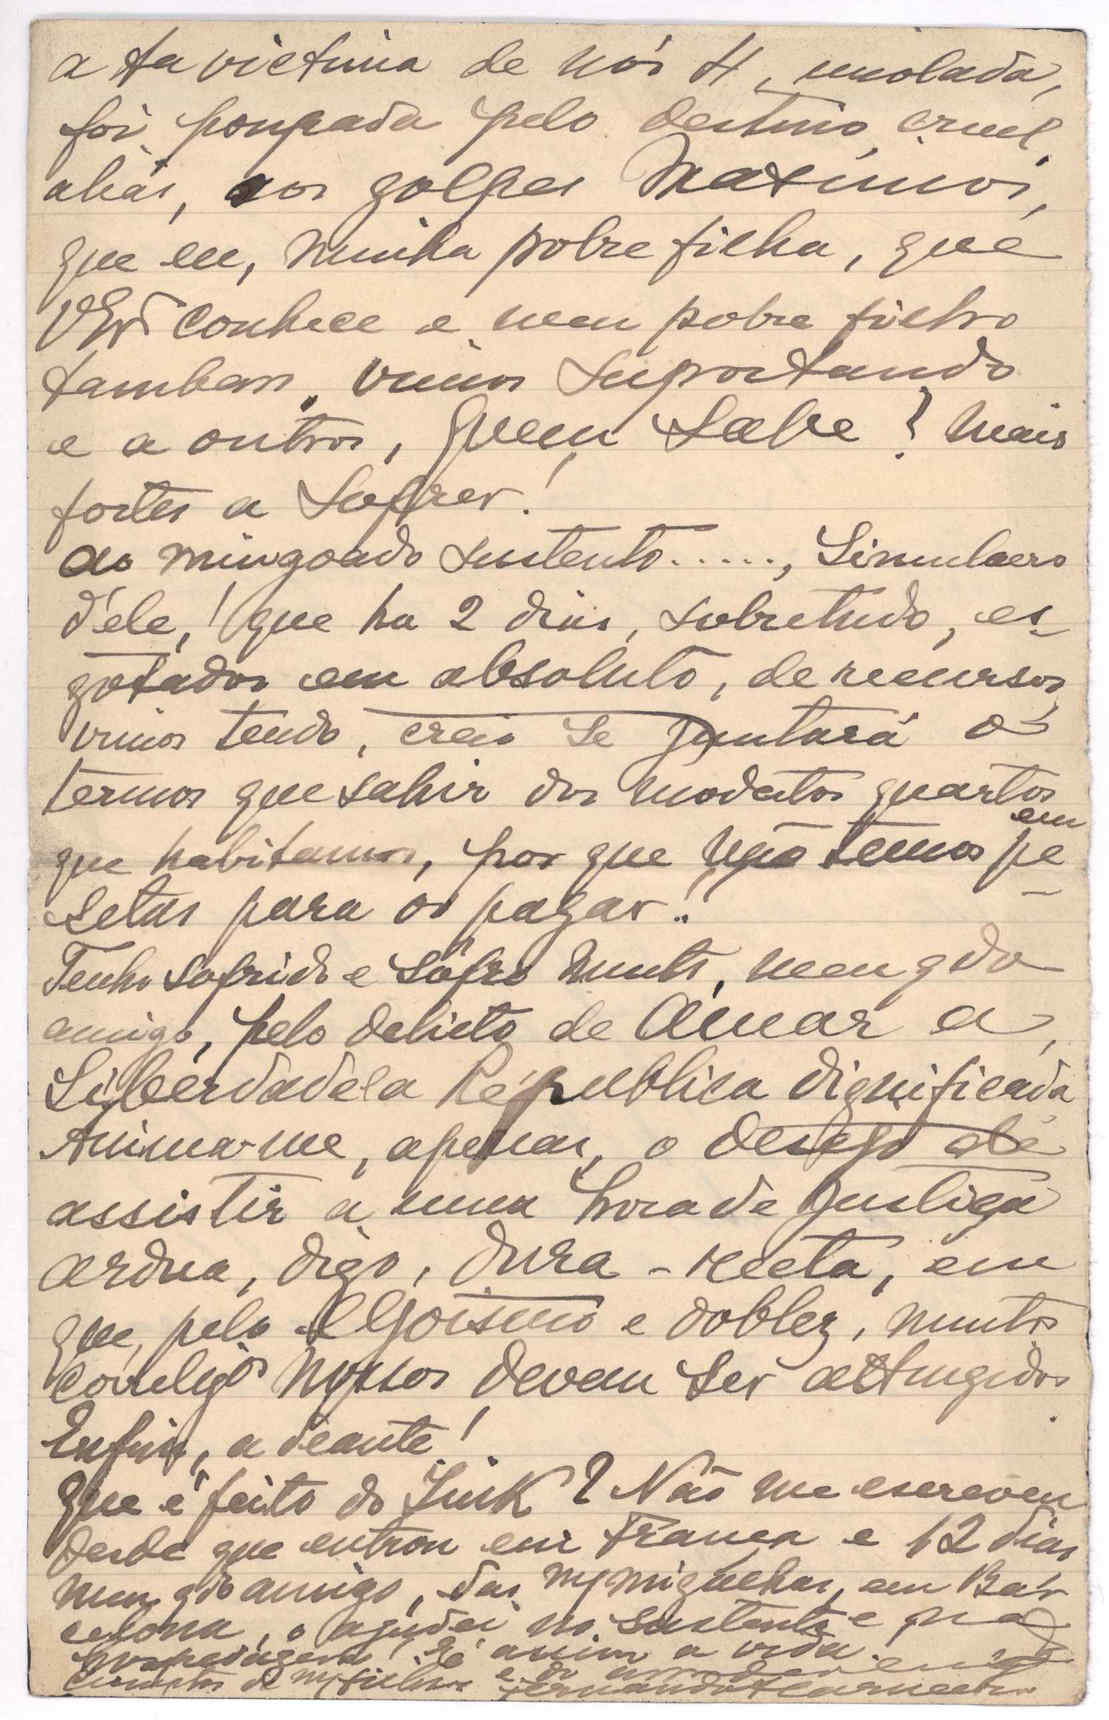 a ta victima de nós 4, imolada,
foi poupada pelo destino, cruel,
aliás, aos golpes Maximos,
que eu, minha pobre filha, que
VExª conhece e meu pobre filho
tambem, vimos suportando
e a outros, Quem Sabe? Mais
fortes a Soffrer!
ao mingoado sustento....., Simulacro
d'ele,! que ha 2 dias, sobretudo, es-
gotados em absoluto, de recursos,
vimos tendo, creio se juntará o
termos que sahir dos modestos quartos
que habitamos, por que não temos em pe-
setas para os pagar!
Tenho Sofrido e Sofro muito, meu qdo
amigo, pelo delicto de Amar a
Liberdade e a Républica dignificada
Anima-me, apenas, o desejo de
assistir a uma hora de Justiça
ardua, digo, dura - recta, em
que, pelo Egoismo e doblez, muitos
correligios Nossos devem ser attingidos.
Enfim, adeante!
Que é feito do Link? Não me escreveu
desde que entrou em França e 12 dias
meu qdo amigo, das mas migalhas, em Bar-
celona, o ajudei no sustento e na
hospedagem! É assim a vida.
de ma filha e do